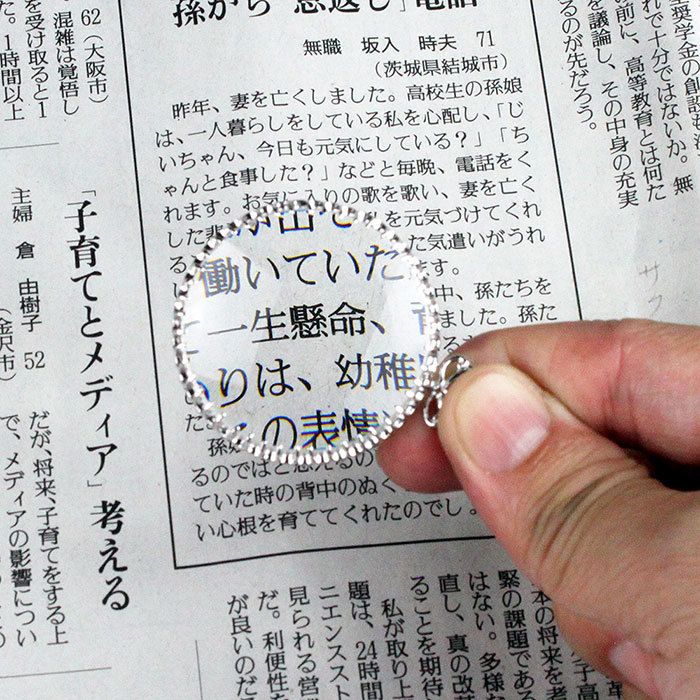 孫から「恩返し」電話
無職 坂入 時夫 71
（茨城県結城市）
昨年、妻を亡くしました。高校生の孫娘
は、一人暮らしをしている私を心配し、「じ
いちゃん、今日も元気にしている？」「ち
ゃんと食事した？」などと毎晩、電話をく
れます。お気に入りの歌を歌い、妻を亡く
した悲
を元気づけてくれ
た気遣いがうれ
ます。
中、孫たちを
ました。孫た
働いていた
一生懸命、
りは、幼稚
の表情
るのではと思えるの
ていた時の背中のぬく
い心根を育ててくれたのでし
62（大阪市）
混雑は覚悟し
を受け取ると1
。1時間以上
「子育てとメディア」考える
主婦 倉 由樹子 52
（金沢市）
だが、将来、子育てをする上
で、メディアの影響につい
奨学金の創設も
れで十分ではないか。無
の前に、高等教育とは何た
を議論し、その中身の充実
るのが先だろう。
本の将来を考
緊の課題である
はない。多様な
直し、真の改
ることを期待
私が取り上
題は、24時間
ニエンススト
見られる営
だ。利便性を
が良いのだ